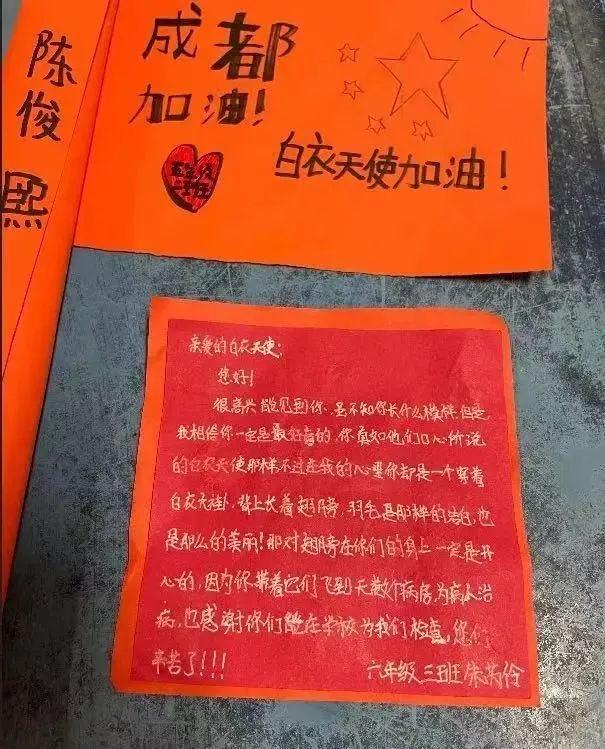 陈俊熙
成都
加油!
白衣天使加油!
亲爱的白衣天使:
您好!
很高兴能见到你,虽不知你长什么模样,但是,
我相信你一定是最好看的,你真如他们口心所说
的白衣天使那样不过在我的心里你却是一个穿着
白衣大褂,背上长着翅膀,羽毛是那样的洁白,也
是那么的美丽!那对翅膀在你们的身上一定是开
心的,因为你带着它们飞到无数个病房,为病人治
病,也感谢你们能在学校为我们检查,您们
辛苦了!!!
六年级三班 朱芮伶